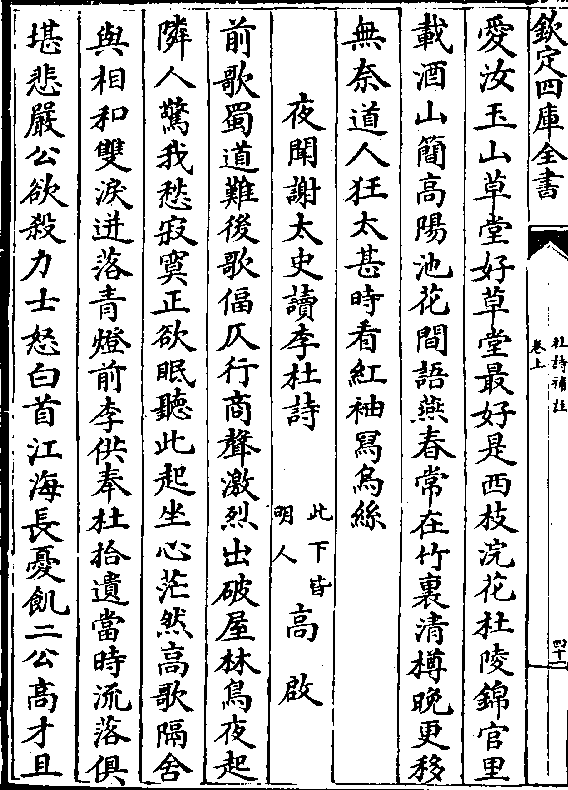 欽定四庫全書
杜詩補註
卷上
四十二
愛汝玉山草堂好草堂最好是西枝浣花杜陵錦官里
載酒山簡高陽池花間語燕春常在竹裏清樽晚更移
無奈道人狂太甚時看紅袖冩烏絲
夜聞謝太史讀李杜詩 此下皆明人 高啟
前歌蜀道難後歌偪仄行商聲激烈出破屋林鳥夜起
隣人驚我愁寂寞正欲眠聽此起坐心茫然高歌隔舍
與相和雙淚迸落青燈前李供奉杜拾遺當時流落俱
堪悲嚴公欲殺力士怒白首江海長憂飢二公高才且